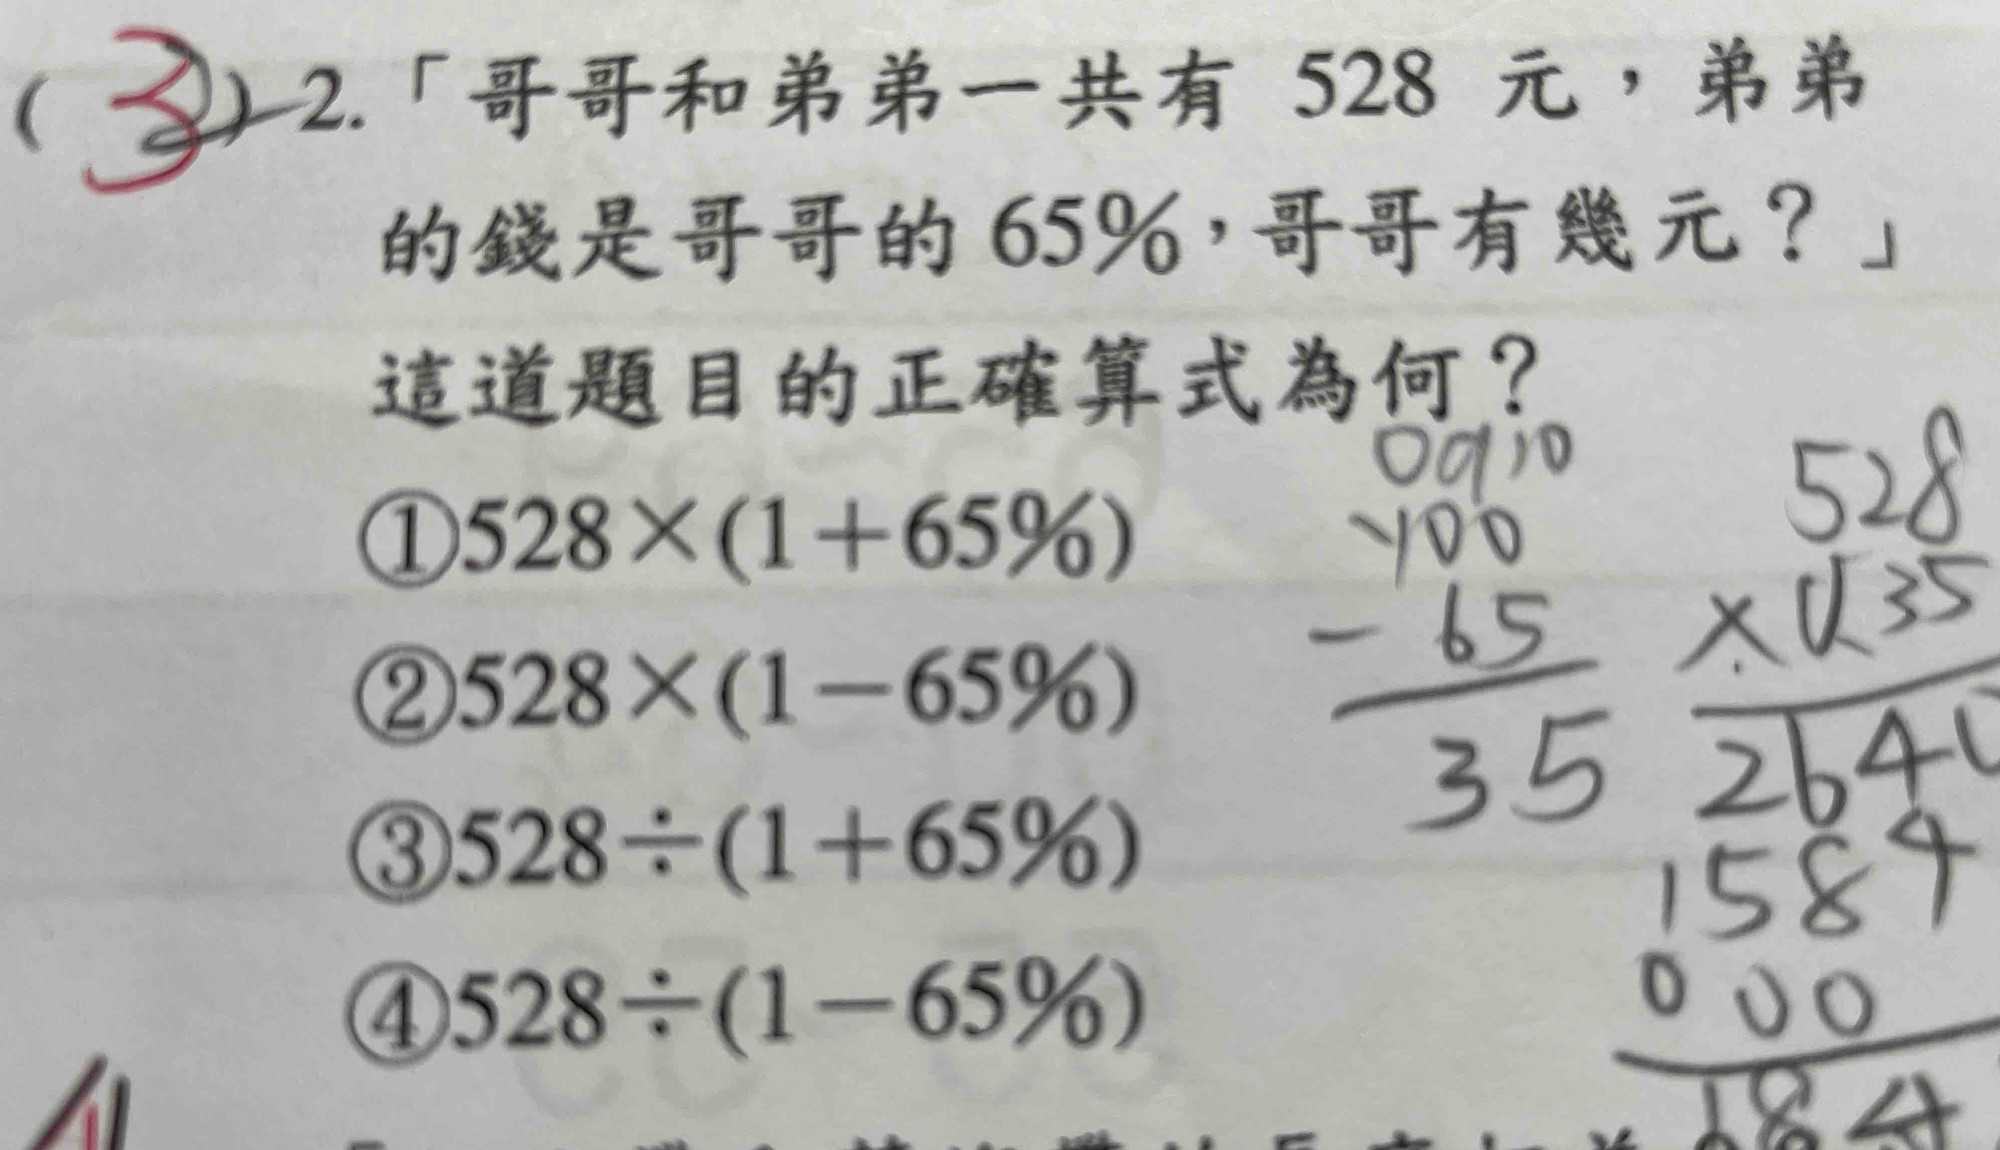 (3) 2.「哥哥和弟弟一共有 528 元，弟弟
的錢是哥哥的65%，哥哥有幾元？」
這道題目的正確算式為何？
①528×(1＋65%)
②528×(1－65%)
③528÷(1＋65%)
④528÷(1－65%)
0910
100
- 65
35
528
× 0.35
2640
1584
000
184